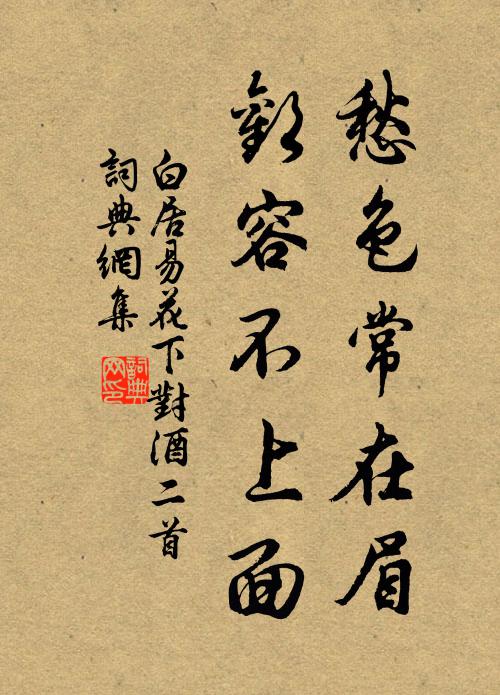 愁色常在眉
歡容不上面
白居易花下對酒二首
詞典網集
詞典
网印